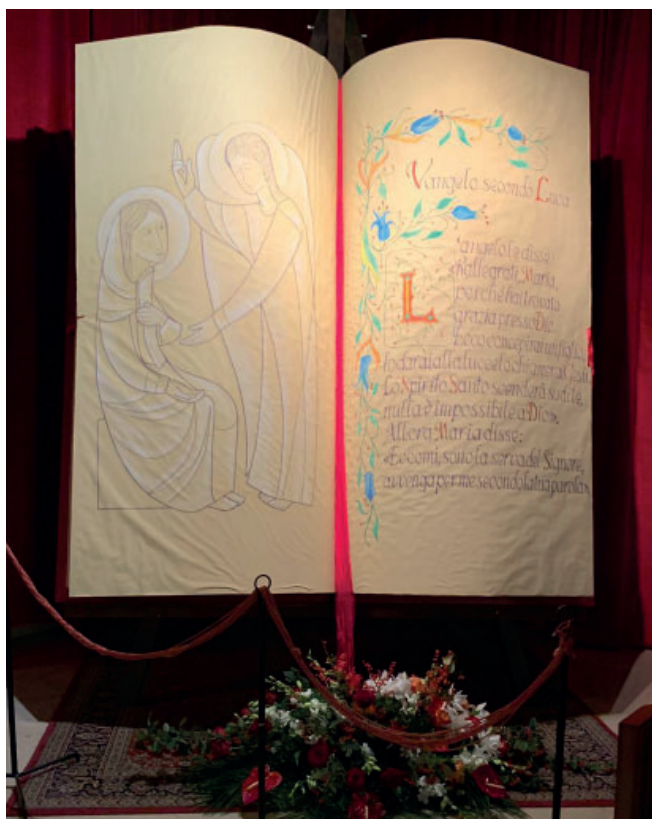 Vangelo secondo Luca
L'angelo le disse:
«Rallegrati Maria,
perché hai trovato
grazia presso Dio.
Ecco concepirai un figlio,
lo darai alla luce e lo chiamerai Gesù.
Lo Spirito Santo scenderà su di te,
nulla è impossibile a Dio».
Allora Maria disse:
«Eccomi, sono la serva del Signore,
avvenga per me secondo la tua parola»